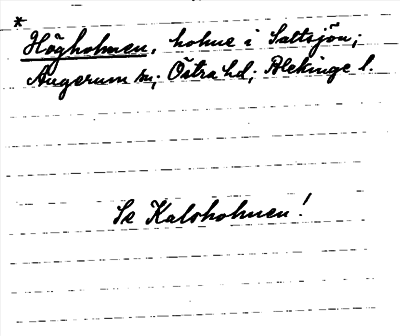 *
Högholmen, holme i Saltsjön;
Augerum sn; Östra hd; Blekinge l.
Se Kalvholmen!